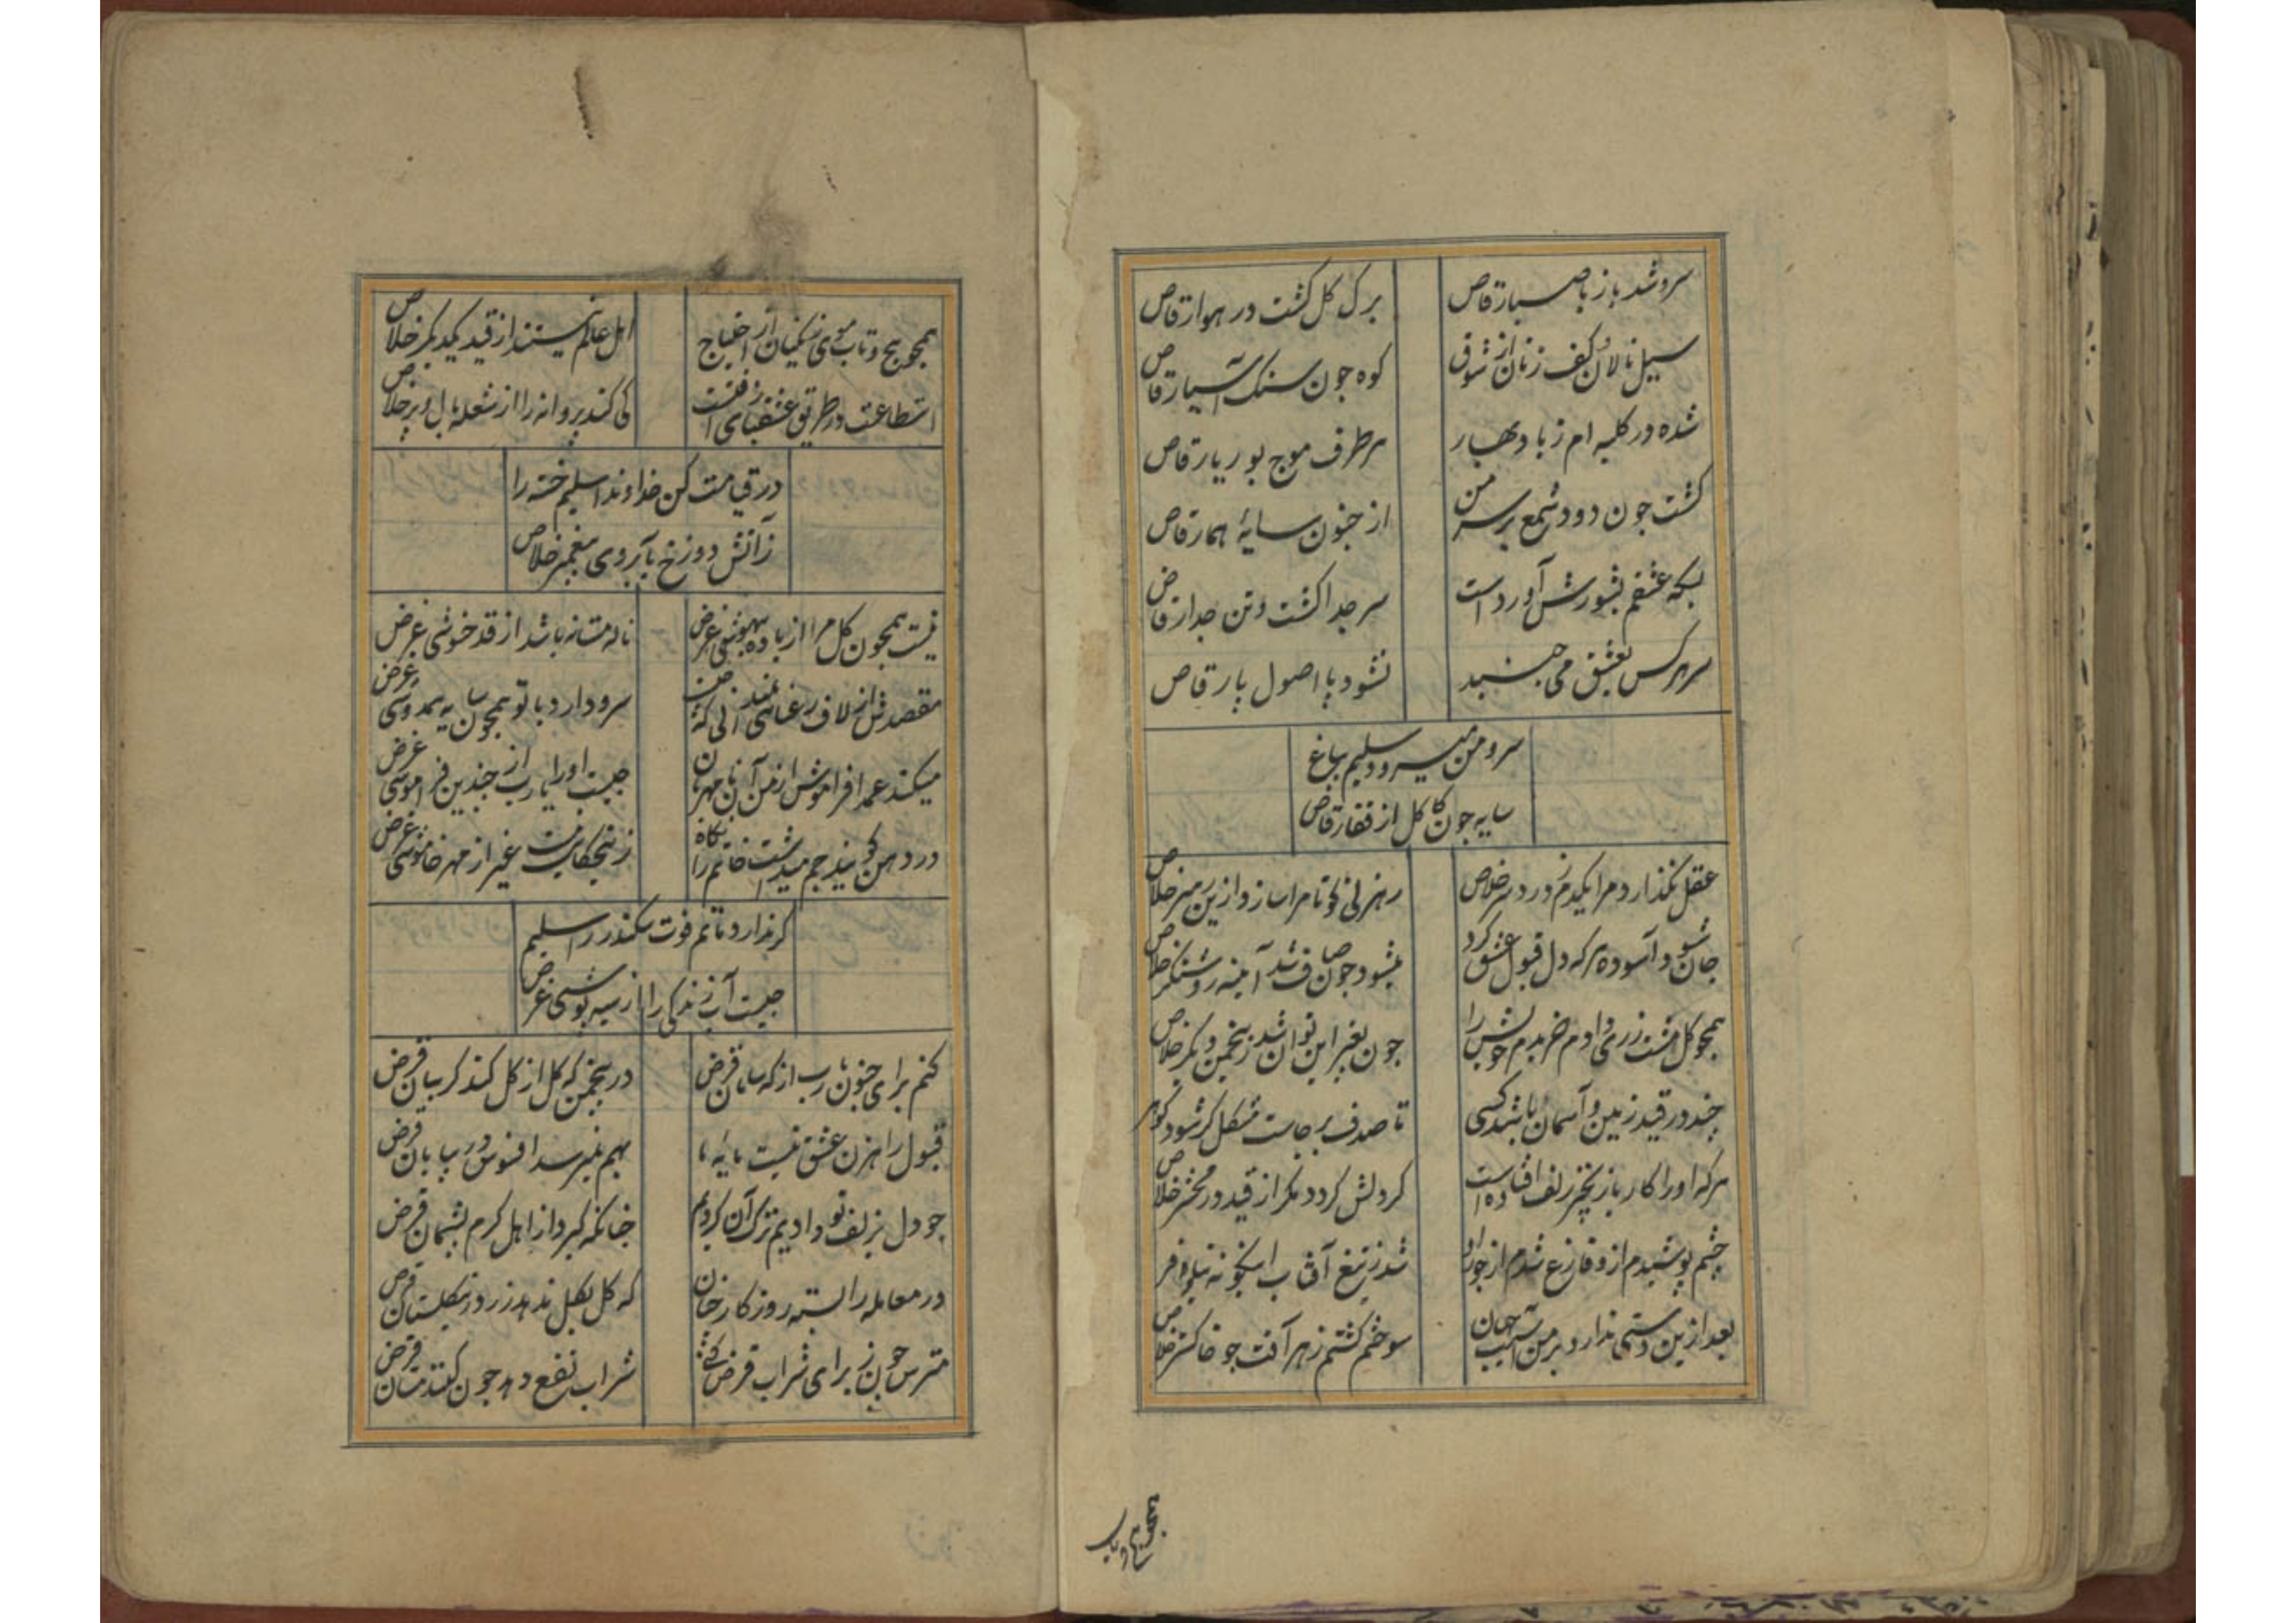 سرو شد باز با صبا رقاص
برک کل کشت در هوا رقاص
سیل نالان و کف زنان از شوق
کوه جون سنک آسیا رقاص
شده در کلبه ام ز باد بهار
هر طرف موج بوریا رقاص
کشت جون دود شمع بر سر من
از جنون سایهٔ هما رقاص
بسکه عشقم بشورش آورد است
سر جدا کشت و تن جدا رقاص
سر هرکس بعشق می جنبد
نشود با اصول پا رقاص
سرو من میرود سلیم بباغ
سایه جون کاکل از قفا رقاص
عقل نکذارد مرا یکدم ز درد سر خلاص
رهزنی کو تا مرا سازد ازین رهبر خلاص
جان شود آسوده هرکه دل قبول عشق کرد
میشود جون صاف شد آیینه روشنکر خلاص
همجو کل مشت زری دادم خریدم خویش را
جون بغیر این توان شد زین دیگر خلاص
چند در قید زمین و آسمان باشد کسی
تا صدف برجاست مشکل کر شود کوهر
هرکه او را کار با زنجیر زلف افتاده است
کر دلش کردد مکر از قید در محشر خلاص
چشم پوشیدم ازو فارغ شدم از جور او
شد ز تیغ آفتاب اینکونه نیلوفر
بعد ازین دستی ندارد بر من آسیب جهان
سوختم کشتم ز هر آفت جو خاکستر خلاص
همجو پیج و تاب
همجو پیج و تاب موی زنکیان از احتیاج
اهل عالم نیستند از قید یکدیکر خلاص
استطاعت در طریق عشقبازی آفتست
کی کند پروانه را از شعله بال و پر خلاص
در قیامت کن خداوندا سلیم خسته را
ز آتش دوزخ بآبروی پیغمبر خلاص
نیست همجون کل مرا از باده بیهوشی غرض
ناله مستانه باشد از قدح نوشی غرض
مقصدش از لاف رعنائی
سرو دارد با تو همجون سایه همدوشی غرض
میکند عمدا فراموش از من آن نامهربان
جیست او را یارب از جندین فراموشی غرض
در دهن کویند جم میداشت خاتم را نکاه
زین حکایت نیست غیر از مهر خاموشی غرض
کر ندارد ماتم فوت سکندر را سلیم
جیست آب زندکی را از سیه پوشی غرض
کنم برای جنون یارب از که سامان قرض
درین چمن که کل از کل کند کریبان قرض
قبول راهزن عشق نیست مایهٔ ما
بهم نمیرسد افسوس در بیابان قرض
جو دل بزلف تو دادیم ترک آن کردیم
جنانکه کیرد از اهل کرم پشیمان قرض
در معامله را بسته روزکار جنان
که کل بکل ندهد زر در کلستان قرض
مترس جون ز برای شراب قرض کنی
شراب نفع دهد جون کنند مستان قرض